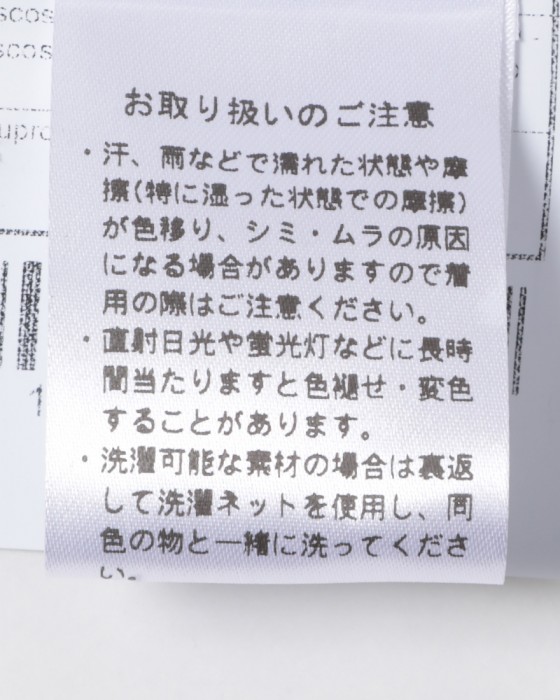 お取り扱いのご注意
・汗、雨などで濡れた状態や摩
擦(特に湿った状態での摩擦)
が色移り、シミ・ムラの原因
になる場合がありますので着
用の際はご注意ください。
・直射日光や蛍光灯などに長時
間当たりますと色褪せ・変色
することがあります。
・洗濯可能な素材の場合は裏返
して洗濯ネットを使用し、同
色の物と一緒に洗ってくださ
い。